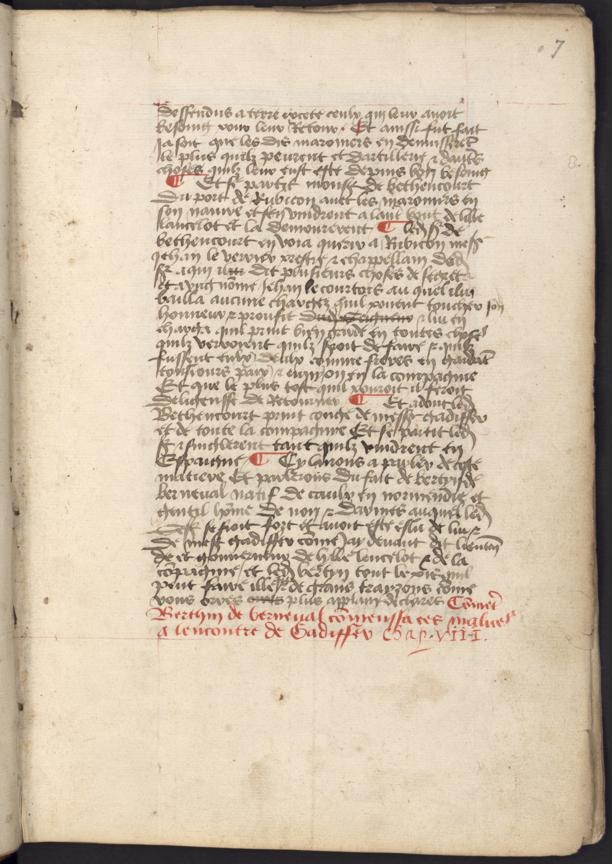 7
descendus a terre excepte ceulx qui leur avoit
besoing pour leur retour. Et ainsi fut fait
ja soit que les dis maroniers en demusserent
le plus quilz peurent et dartillerie et dautres
choses quilz leur eust este depuis bien besoing
Et se partit mons.r de bethencourt
du port de Rubicon avec les maronners en
son navire et sen vindrent a lautre bout de lille
lancelot et la demourerent led. s.r de
bethencourt envoia querir a Rubicon mess.
jehan le verrier prestre et chappellain
a qui dit plusieurs choses de secret
et a ung nomme Jehan le courtois au quel il
bailla aucune charge quil povent toucher son
honneur et prouffit et lui en
charga quil print bien garde en toutes choses
quilz verroient quilz seroit de faire et quilz
fussent eulx deulx comme freres en gardant
tousiours paix et union en la compaignie
Et que le plus tost quil pourroit il feroit
deligensse de Retourner Et adont led.
Bethencourt print conge de messe gadiffer
et de toute la compaignie Et se partit led.
s.r et singlerent tant quilz vindrent en
Espaigne Cy larons a parler de ceste
matiere Et parlerons du fait de bertin de
berneval natif de caulx en normendie et
gentil home de non et darmes auquel led.
se fioit fort et avoit este eslu de luy et
de mess.e gadiffer come jay devant dit lieuten
de et gouverneur de lille lancelot et de la
compaignie et led. bertin tout le pis quil
peut faire il le fist et de grans traysons come
vous orres plus applain declairet Coment
Berthin de berneval comenssa ces malices
a lencontre de Gadiffer Chap. VIII.